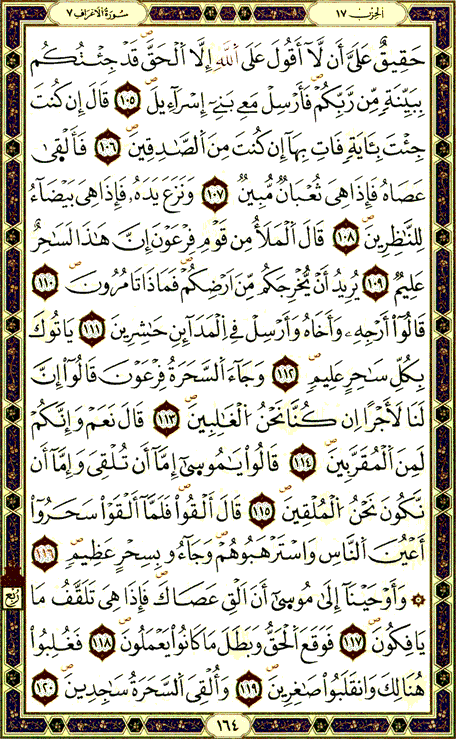 الحزب ١٧ سورة الأعراف ٧
حَقِيقٌ عَلَىٰٓ أَن لَّآ أَقُولَ عَلَى اَللَّهِ إِلَّا اَلْحَقَّ قَدْ جِئْتُكُم
بِبَيِّنَةٍ مِّن رَّبِّكُمْ فَأَرْسِلْ مَعِي بَنِىٓ إِسْرَآءِيلَ ١٠٥ قَالَ إِن كُنتَ
جِئْتَ بِـَٔايَةٍ فَاتِ بِهَآ إِن كُنتَ مِنَ اَلصَّٰدِقِينَ ١٠٦ فَأَلْقَىٰ
عَصَاهُ فَإِذَا هِىَ ثُعْبَانٌ مُّبِينٌ ١٠٧ وَنَزَعَ يَدَهُۥ فَإِذَا هِىَ بَيْضَآءُ
لِلنَّٰظِرِينَ ١٠٨ قَالَ اَلْمَلَأُ مِن قَوْمِ فِرْعَوْنَ إِنَّ هَٰذَا لَسَٰحِرٌ
عَلِيمٌ ١٠٩ يُرِيدُ أَنْ يُّخْرِجَكُم مِّنَ اَرْضِكُمْ فَمَاذَا تَامُرُونَ ١١٠
قَالُوٓاْ أَرْجِهِۦ وَأَخَاهُ وَأَرْسِلْ فِى اِلْمَدَآئِنِ حَٰشِرِينَ ١١١ يَاتُوكَ
بِكُلِّ سَٰحِرٍ عَلِيمٍ ١١٢ وَجَآءَ اَلسَّحَرَةُ فِرْعَوْنَ قَالُوٓاْ إِنَّ
لَنَا لَأَجْرًا اِن كُنَّا نَحْنُ اُلْغَٰلِبِينَ ١١٣ قَالَ نَعَمْ وَإِنَّكُمْ
لَمِنَ اَلْمُقَرَّبِينَ ١١٤ قَالُواْ يَٰمُوسَىٰٓ إِمَّآ أَن تُلْقِىَ وَإِمَّآ أَن
نَّكُونَ نَحْنُ اُلْمُلْقِينَ ١١٥ قَالَ أَلْقُواْ فَلَمَّآ أَلْقَوْاْ سَحَرُوٓاْ
أَعْيُنَ اَلنَّاسِ وَاسْتَرْهَبُوهُمْ وَجَآءُو بِسِحْرٍ عَظِيمٍ ١١٦
وَأَوْحَيْنَآ إِلَىٰ مُوسَىٰٓ أَنَ اَلْقِ عَصَاكَ فَإِذَا هِىَ تَلَقَّفُ مَا
يَافِكُونَ ١١٧ فَوَقَعَ اَلْحَقُّ وَبَطَلَ مَا كَانُواْ يَعْمَلُونَ ١١٨ فَغُلِبُواْ
هُنَالِكَ وَانقَلَبُواْ صَٰغِرِينَ ١١٩ وَأُلْقِىَ اَلسَّحَرَةُ سَٰجِدِينَ ١٢٠
ربع
١٦٤